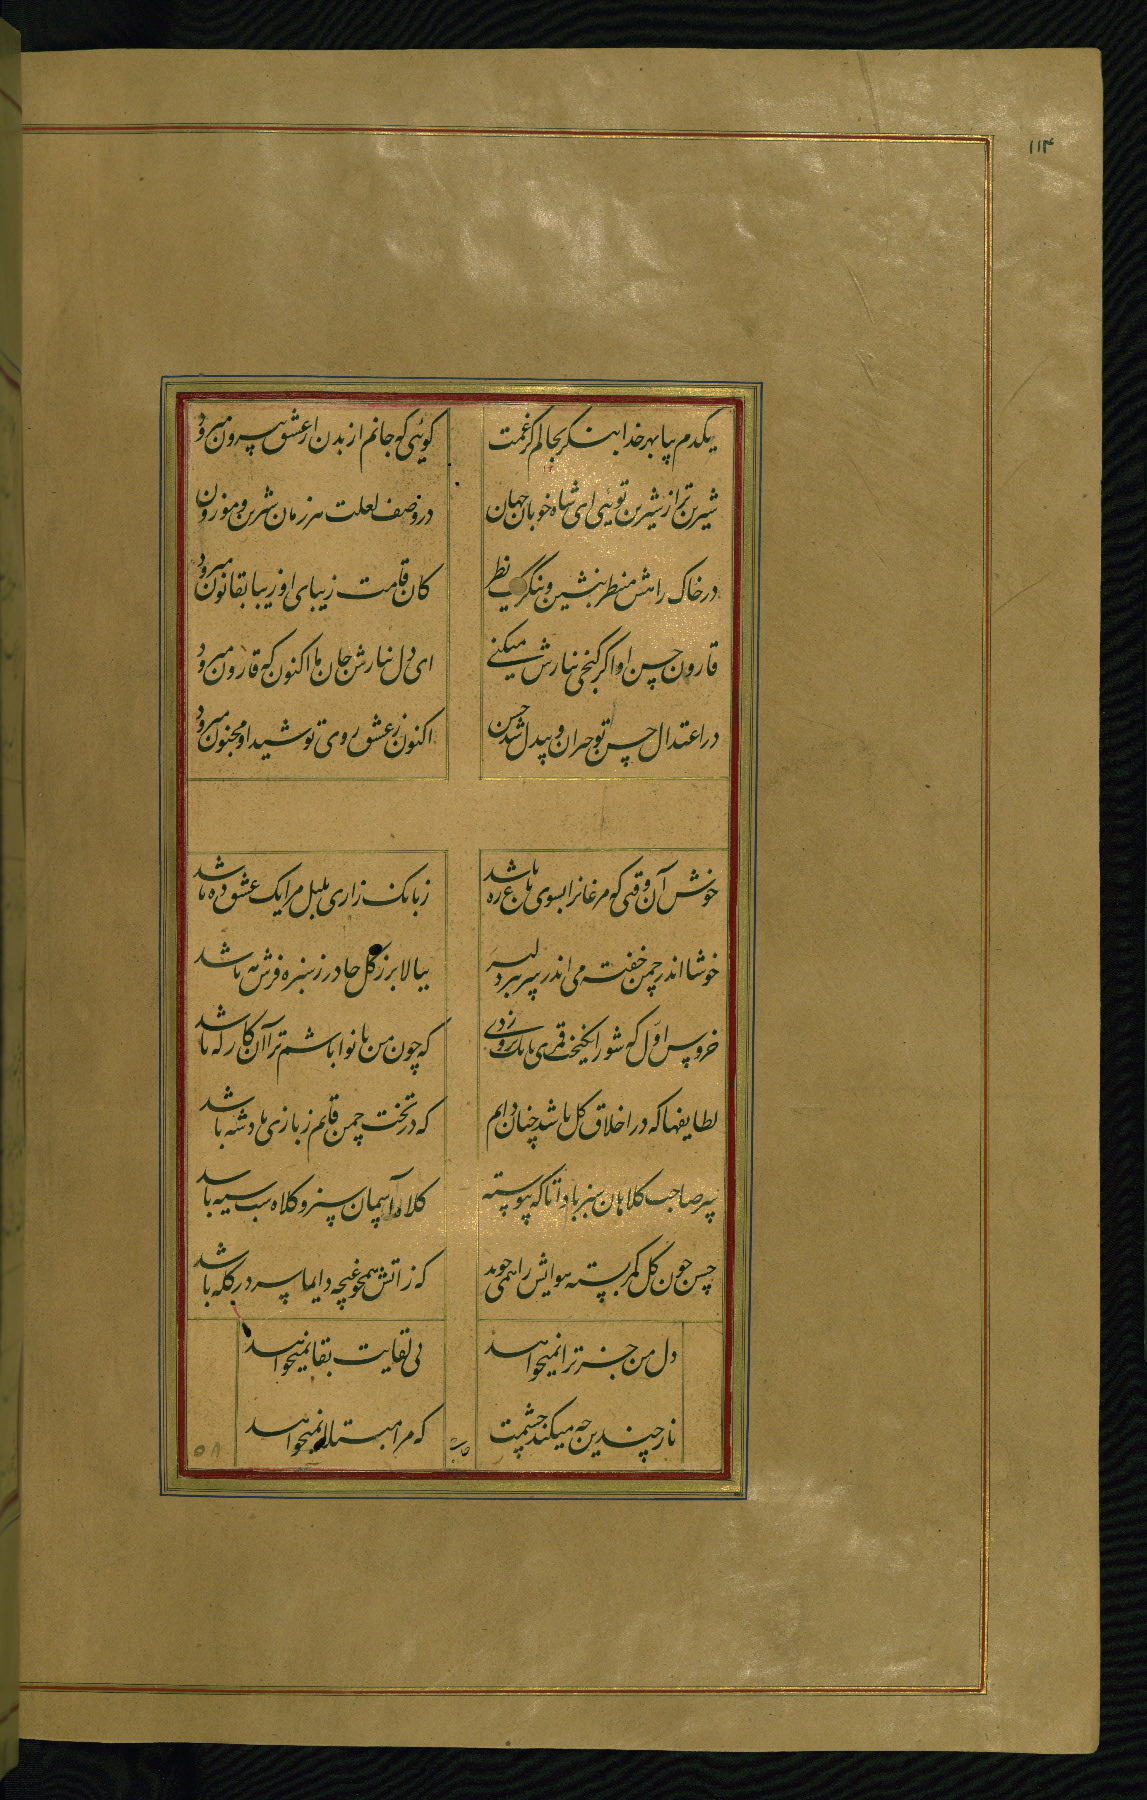 ۱۱۴
یکدم بیا بهر خدا بنگر بحالم کز غمت
کویی که جانم از بدن از عشق بیرون میرود
شیرین تر از شیرین تویی ای شاه خوبان جهان
در وصف لعلت هر زمان شیرین و موزون
در خاک راهش منتظر بنشین و بنگر یک نظر
کان قامت زیبای او زیبا بقانون میرود
قارون حسن او اکر کنجی نثارش میکنی
ای دل نثارش جان ما اکنون که قارون میرود
در اعتدال حسن تو حیران و بیدل شد حسن
اکنون ز عشق روی تو شیدا و مجنون میرود
خوش آن وقتی که مرغانرا بسوی باغ ره باشد
ز بانک زاری بلبل مرا یک عشق ده باشد
خوشا اندر چمن خفته می اندر سر بر دلبر
ببالا بر ز کل چادر ز سبزه فرش ته باشد
خروس اول که شور انکیخت قمری بانک بر وی زد
که چون من با نوا باشم ترا آن کار که باشد
لطایفها که در اخلاق کل باشد چنان دایم
که در تخت چمن قایم ز بازی بادشه باشد
سر صاحب کلاهان سبز بادا تا که پیوسته
کلاه آسمان سبز و کلاه شب سیه باشد
حسن چون کل کمر بسته هوایش را همی جوید
که ز آتش همچو غنچه دایما سر در کله باشد
دل من جز ترا نمیخواهد
بی لقایت بقا نمیخواهد
ناز چندین چه میکند چشمت
که مرا مبتلا نمیخواهد